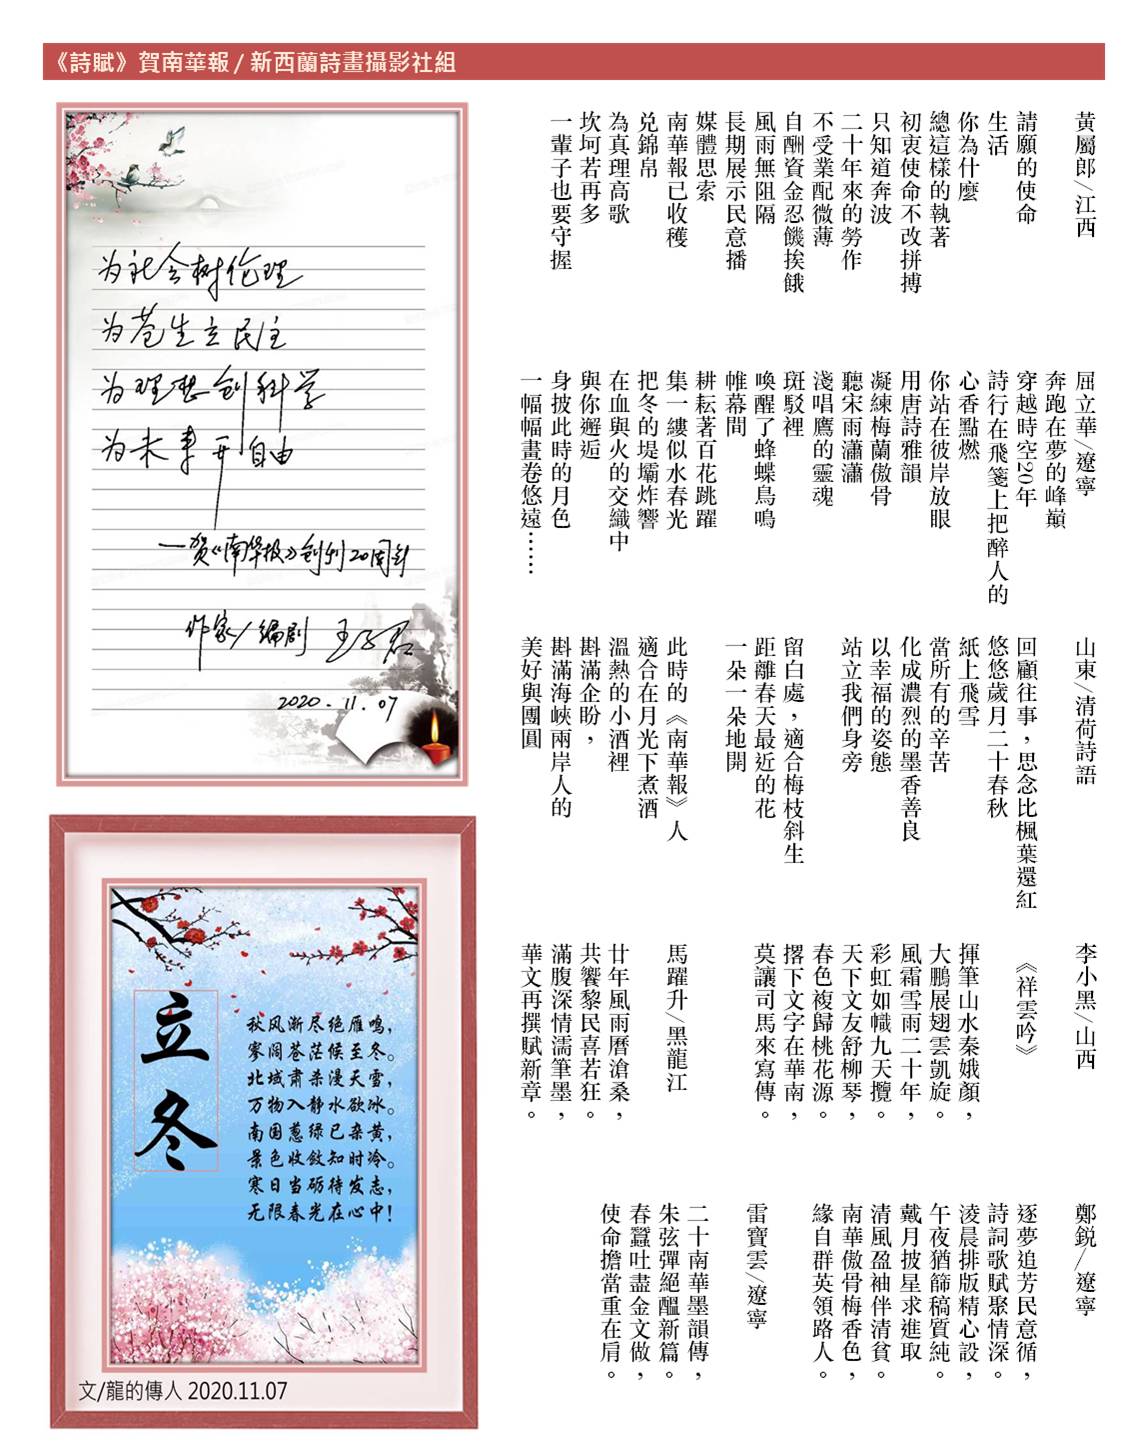 《詩賦》賀南華報 / 新西蘭詩畫攝影社組
黃屬郎/江西
請願的使命
生活
你為什麼
總這樣的執著
初衷使命不改拼搏
只知道奔波
二十年來的勞作
不受業配微薄
自酬資金忍饑挨餓
風雨無阻隔
長期展示民意播
媒體思索
南華報已收穫
兑錦帛
為真理高歌
坎坷若再多
一輩子也要守握
屈立華/遼寧
奔跑在夢的峰巔
穿越時空20年
詩行在飛箋上把醉人的
心香點燃
你站在彼岸放眼
用唐詩雅韻
凝練梅蘭傲骨
聽宋雨瀟瀟
淺唱鷹的靈魂
斑駁裡
喚醒了蜂蝶鳥鳴
帷幕間
耕耘著百花跳躍
集一縷似水春光
把冬的堤壩炸響
在血與火的交織中
與你邂逅
身披此時的月色
一幅幅畫卷悠遠……
山東/清荷詩語
回顧往事，思念比楓葉還紅
悠悠歲月二十春秋
紙上飛雪
當所有的辛苦
化成濃烈的墨香善良
以幸福的姿態
站立我們身旁
留白處，適合梅枝斜生
距離春天最近的花
一朵一朵地開
此時的《南華報》人
適合在月光下煮酒
溫熱的小酒裡
斟滿企盼，
斟滿海峽兩岸人的
美好與團圓
李小黑/山西
《祥雲吟》
揮筆山水秦娥顏，
大鵬展翅雲凱旋。
風霜雪雨二十年，
彩虹如幟九天攬。
天下文友舒柳琴，
春色複歸桃花源。
撂下文字在華南，
莫讓司馬來寫傳。
馬躍升/黑龍江
廿年風雨曆滄桑，
共饗黎民喜若狂。
滿腹深情濡筆墨，
華文再撰賦新章。
鄭鋭/遼寧
逐夢追芳民意循，
詩詞歌賦聚情深。
淩晨排版精心設，
午夜猶篩稿質純。
戴月披星求進取
清風盈袖伴清貧。
南華傲骨梅香色，
緣自群英領路人。
雷寶雲/遼寧
二十南華墨韻傳，
朱弦彈絕醞新篇。
春蠶吐盡金文做，
使命擔當重在肩。
为社会树伦理
为苍生立民主
为理想创科学
为未来开自由
—贺《南华报》创刊20周年
作家/编剧 王子君
2020.11.07
立冬
秋风渐尽绝雁鸣，
寥阔苍茫候至冬。
北域肃杀漫天雪，
万物入静水欲冰。
南国葱绿已杂黄，
景色收敛知时冷。
寒日当砺待发志，
无限春光在心中！
文/龍的傳人 2020.11.07